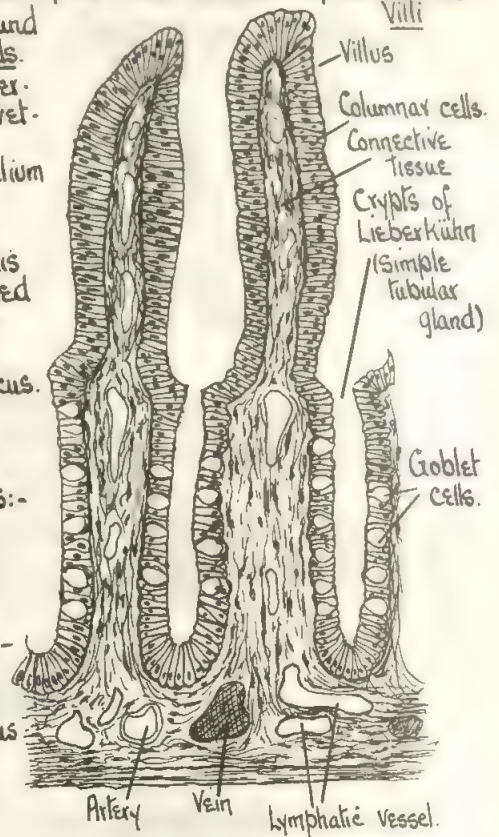 Villi
und
ds.
er-
ret-
lium
is
ed
cus.
s:-
-
us
Villus
Columnar cells.
Connective
Tissue
Crypts of
Lieberkühn
(Simple
tubular
gland)
Goblet
cells.
Artery
Vein
Lymphatic vessel.